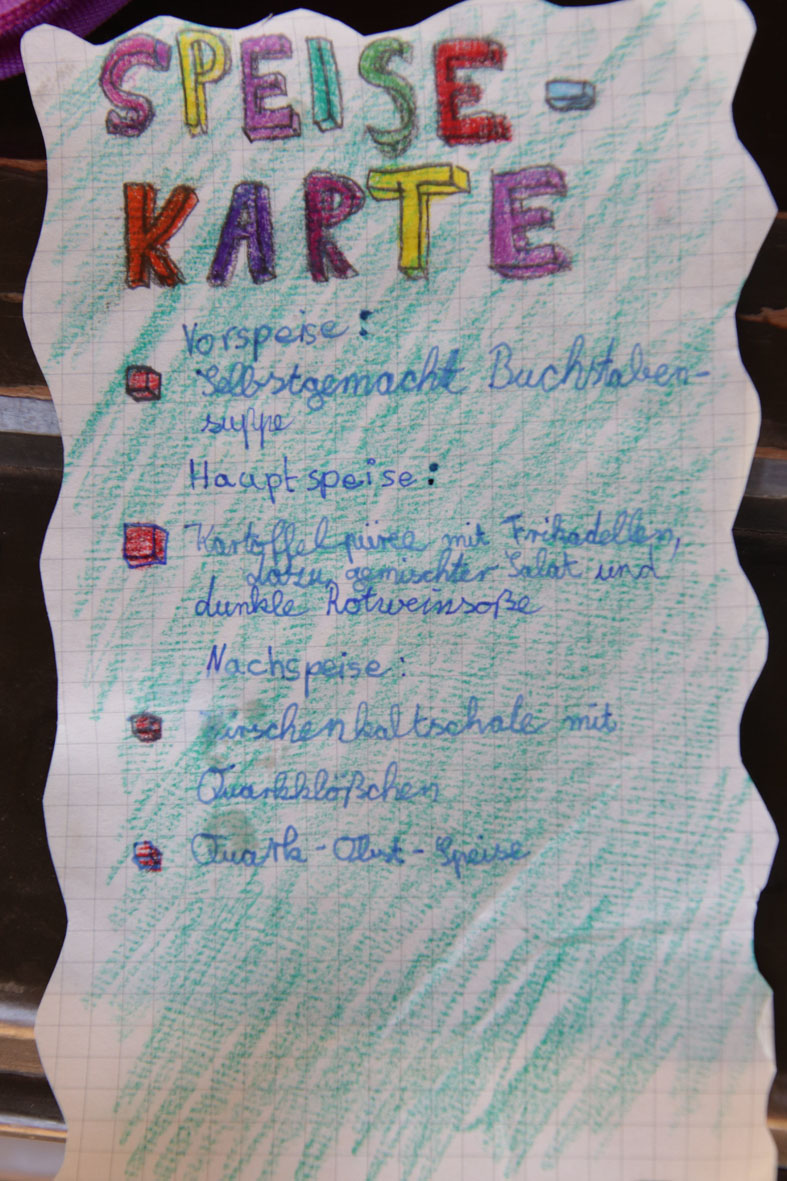 SPEISE-
KARTE
Vorspeise:
Selbstgemacht Buchstaben-
suppe
Hauptspeise:
Kartoffelpüree mit Frikadellen,
dazu gemischter Salat und
dunkle Rotweinsoße
Nachspeise:
Kirschenkaltschale mit
Quarkklößchen
Quark-Obst-Speise